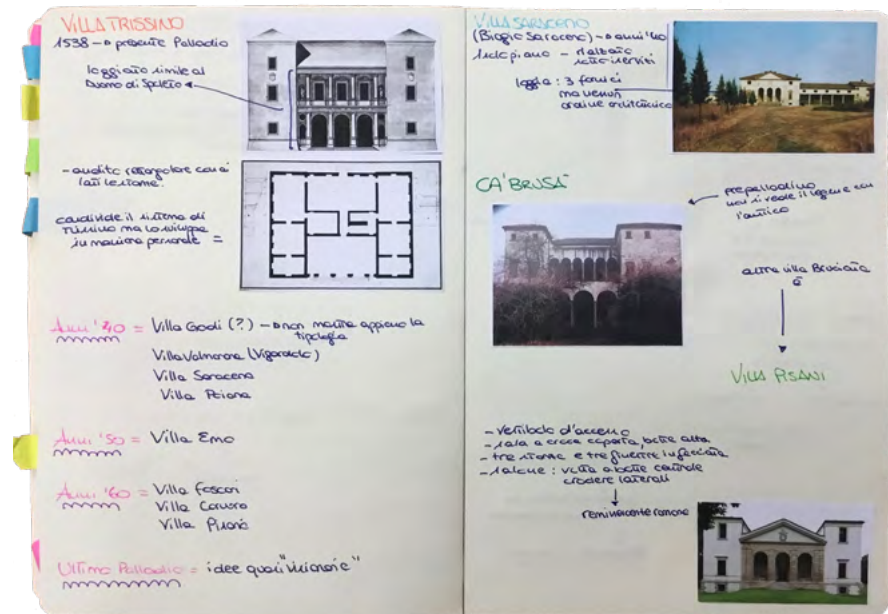 VILLA TRISSINO
1538 → presente Palladio
loggiato simile al
Duomo di Spoleto
- androne rettangolare con ai
lati le stanze.
condivide il sistema di
Trissino ma lo sviluppa
in maniera personale =
Anni '40 = Villa Godi (?) → non mostra appieno la
tipologia
Villa Valmarana (Vigardolo)
Villa Saraceno
Villa Poiana
Anni '50 = Villa Emo
Anni '60 = Villa Foscari
Villa Cornaro
Villa Pisani
Ultimo Palladio = idee quasi "visionarie"
VILLA SARACENO
(Biagio Saraceno) → anni '40
piano - rialzato
sotto servizi
loggia : 3 fornici
ma nessun
ordine architettonico
CA' BRUSÀ
prepalladiano
non si vede il legame con
l'antico
altra villa
è
VILLA PISANI
- vestibolo d'accesso
- sala a croce coperta, botte alta
- tre stanze e tre finestre in facciata
- salone : volta a botte centrale
crociere laterali
reminiscenze romane